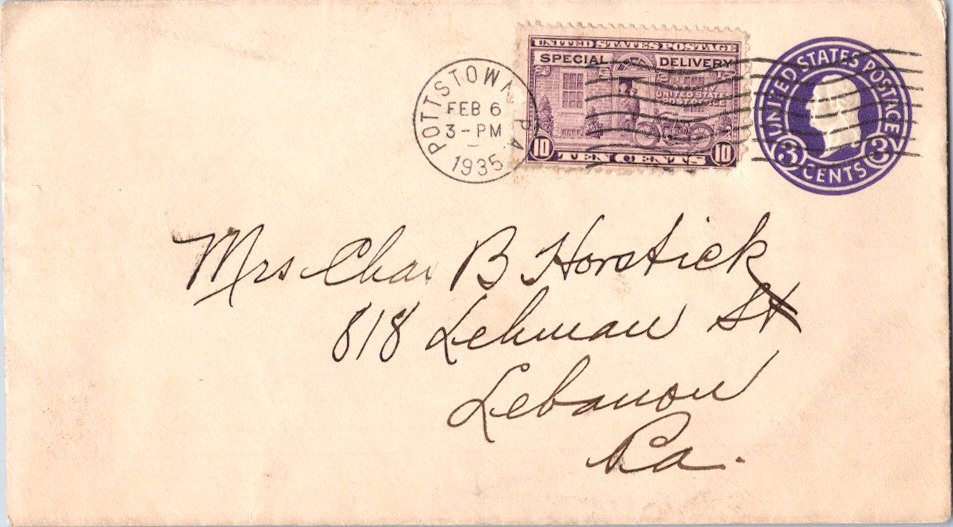 POTTSTOWN, PA.
FEB 6
3-PM
1935
UNITED STATES POSTAGE
SPECIAL DELIVERY
UNITED STATES
POST OFFICE
10 TEN CENTS 10
UNITED STATES POSTAGE
3 CENTS 3
Mrs Chas B Horstick
818 Lehman St
Lebanon
Pa.